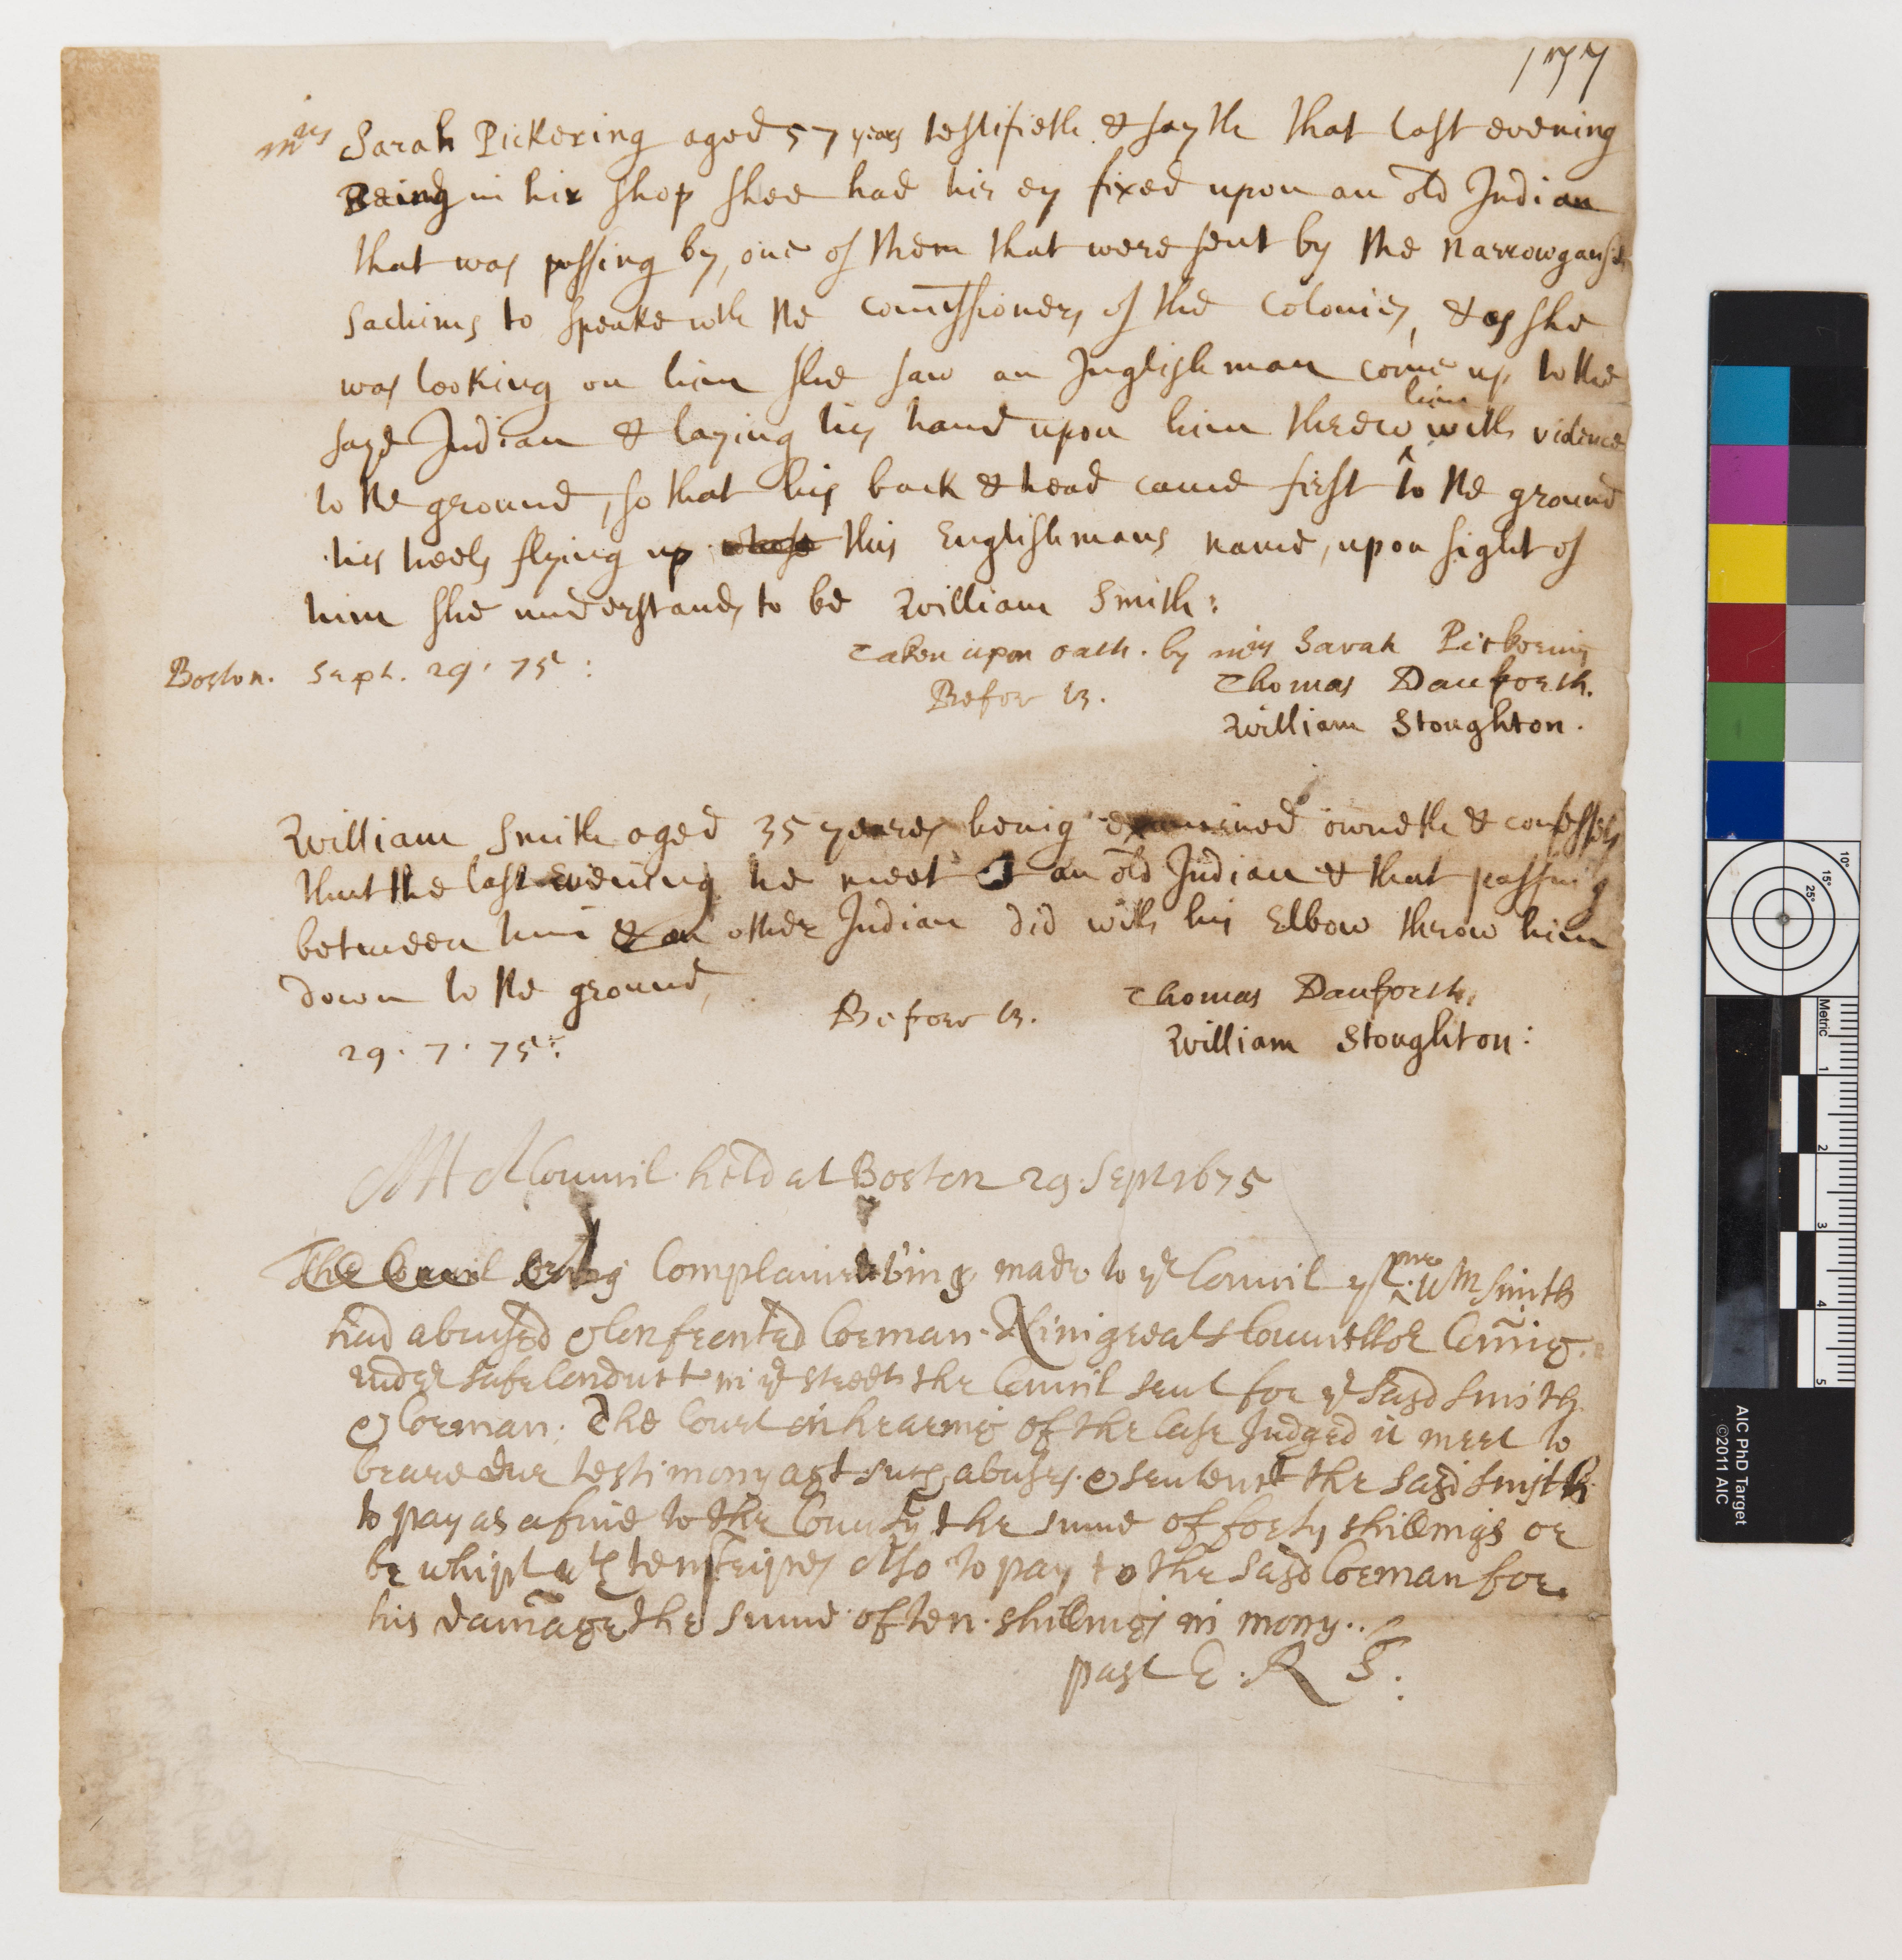 177
mrs Sarah Pickering aged 57 years testifieth & sayth that last evening
Being in hir shop shee had hir ey fixed upon an old Indian
that was passing by, one of them that were sent by the Narrowganset
Sachims to speake wth the Comissioners of the Colonies, & as she
was looking on him she saw an Inglishman come up to the
sayd Indian & laying his hand upon him threw him with violence
to the ground, so that his back & head came first to the ground
his heels flying up whose this Englishmans name, upon sight of
him she understands to be William Smith:
Taken upon oath. by mrs Sarah Pickering
Boston. Sept. 29. 75:
Before us. Thomas Danforth.
William Stoughton.
William Smith aged 35 yeares being examined owneth & confesseth
that the last Evening he meet an old Indian & that passing
between him & an other Indian did with his Elbow throw him
down to the ground,
Before us. Thomas Danforth.
William Stoughton:
29. 7. 75:
At A Council held at Boston 29 Sept 1675
The Council Complaint being made to ye Council yt one Wm Smith
had abused & Confronted Corman Ninigreats Councellor Coming
under safe Conduct in ye street the Council sent for ye said Smith
& Corman. The Court on hearing of the Case Judged it meet to
beare due testimony agt such abuses & sentenct the said Smith
to pay as a fine to the County the sume of forty shillings or
be whipt wth ten stripes Also to pay to the said Corman for
his damage the sume of ten shillings in mony..
past E. R S: